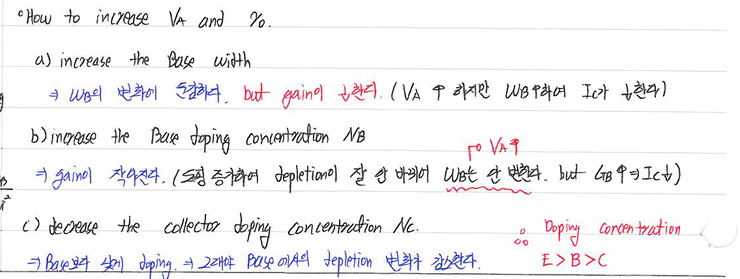 °How to increase VA and ro.
a) increase the Base width
⇒ WB의 변화에 둔감하다. but gain이 ↓한다. (VA ↑ 하지만 WB↑하여 Ic가 ↓한다)
b) increase the Base doping concentration NB
┌○ VA↑
⇒ gain이 작아진다. (도핑 증가하여 depletion이 잘 안 바뀌어 WB는 안 변한다. but GB↑⇒Ic↓)
c) decrease the collector doping concentration Nc.
∴ Doping concentration
⇒ Base보다 낮게 doping. ⇒ 그래야 Base에서의 depletion 변화가 감소한다.
E>B>C